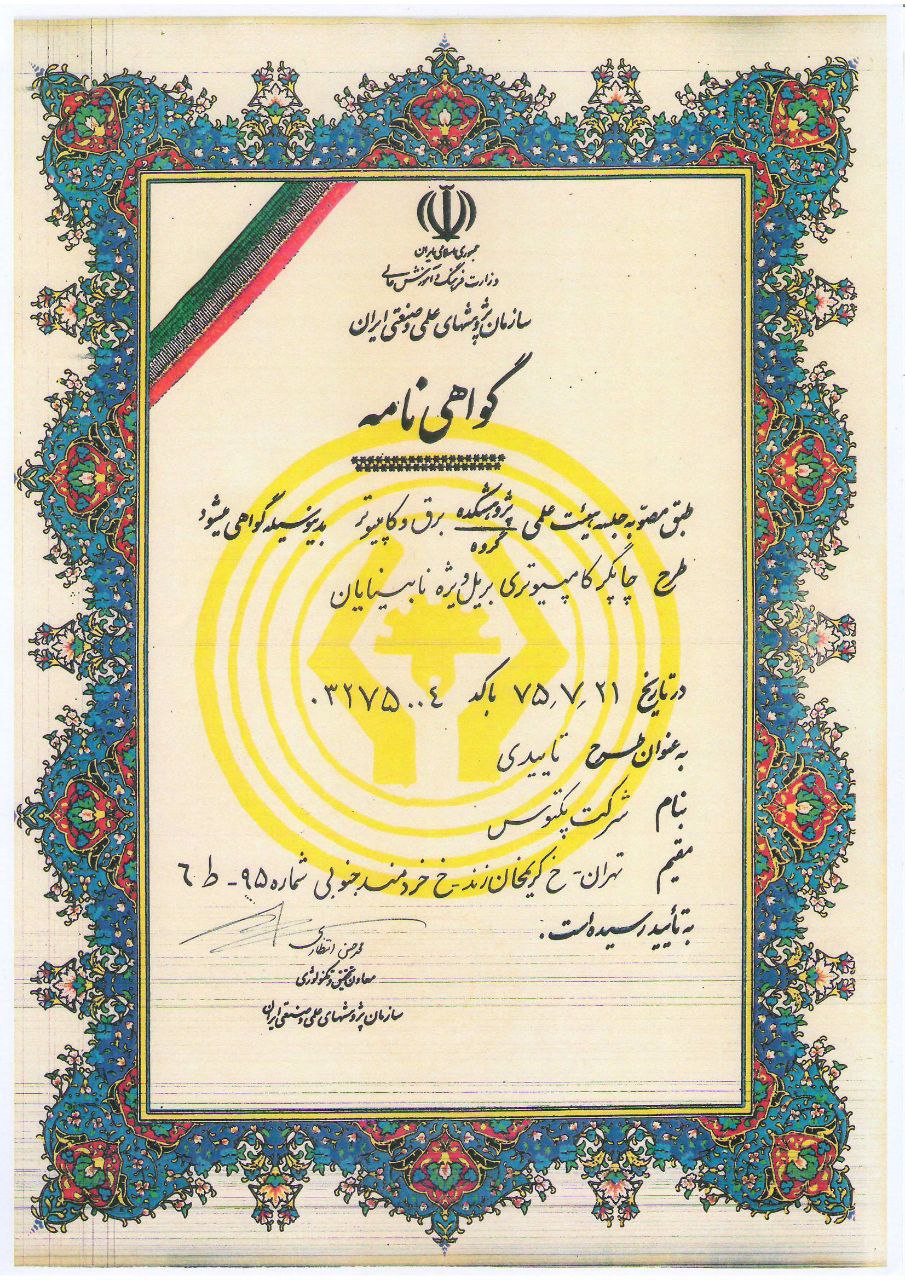 جمهوری اسلامی ایران
وزارت فرهنگ و آموزش عالی
سازمان پژوهشهای علمی و صنعتی ایران
گواهی نامه
طبق مصوبه جلسه هیئت علمی پژوهشکده برق و کامپیوتر بدینوسیله گواهی میشود
گروه
طرح چاپگر کامپیوتری بریل ویژه نابینایان
در تاریخ ۷۵٫۷٫۲۱ با کد ۰۳۲۷۵۰۰۴
به عنوان طرح تاییدی
بنام شرکت پکتوس
مقیم تهران - خ کریمخان زند - خ خردمند جنوبی شماره ۹۵ - ط ۶
به تأیید رسیده است.
انتظاری
معاون تحقیق و تکنولوژی
سازمان پژوهشهای علمی و صنعتی ایران